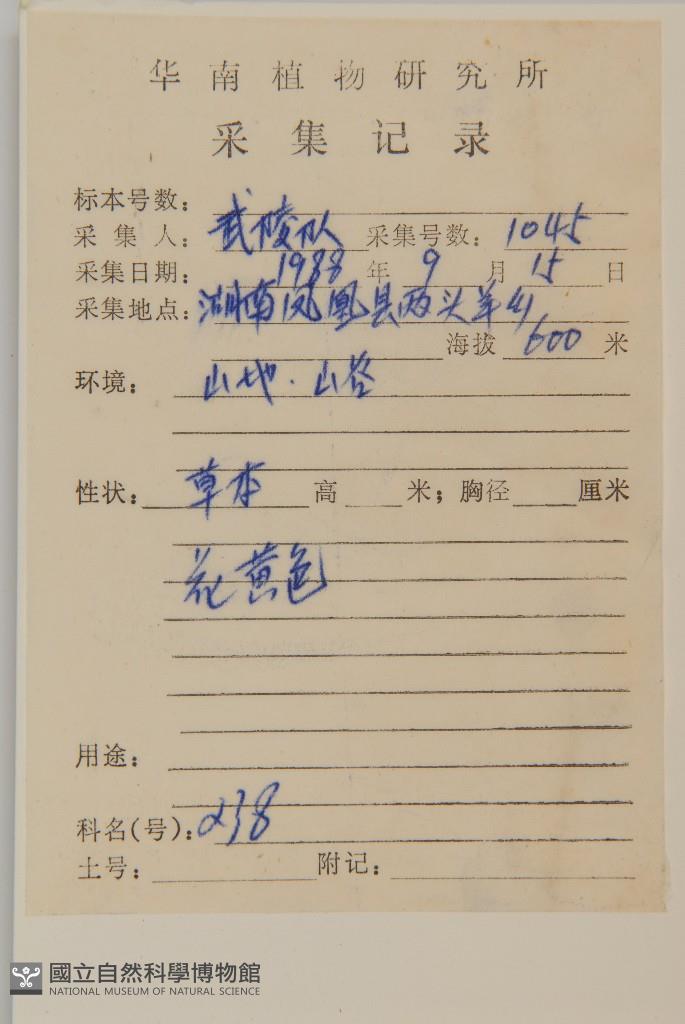 华南植物研究所
采集记录
标本号数：
采集人：武陵队 采集号数：1045
采集日期：1988年9月15日
采集地点：湖南凤凰县两头羊乡
海拔 600 米
环境：山地．山谷
性状：草本 高 米；胸径 厘米
花黄色
用途：
科名(号)：238
土号： 附记：
國立自然科學博物館
NATIONAL MUSEUM OF NATURAL SCIENCE